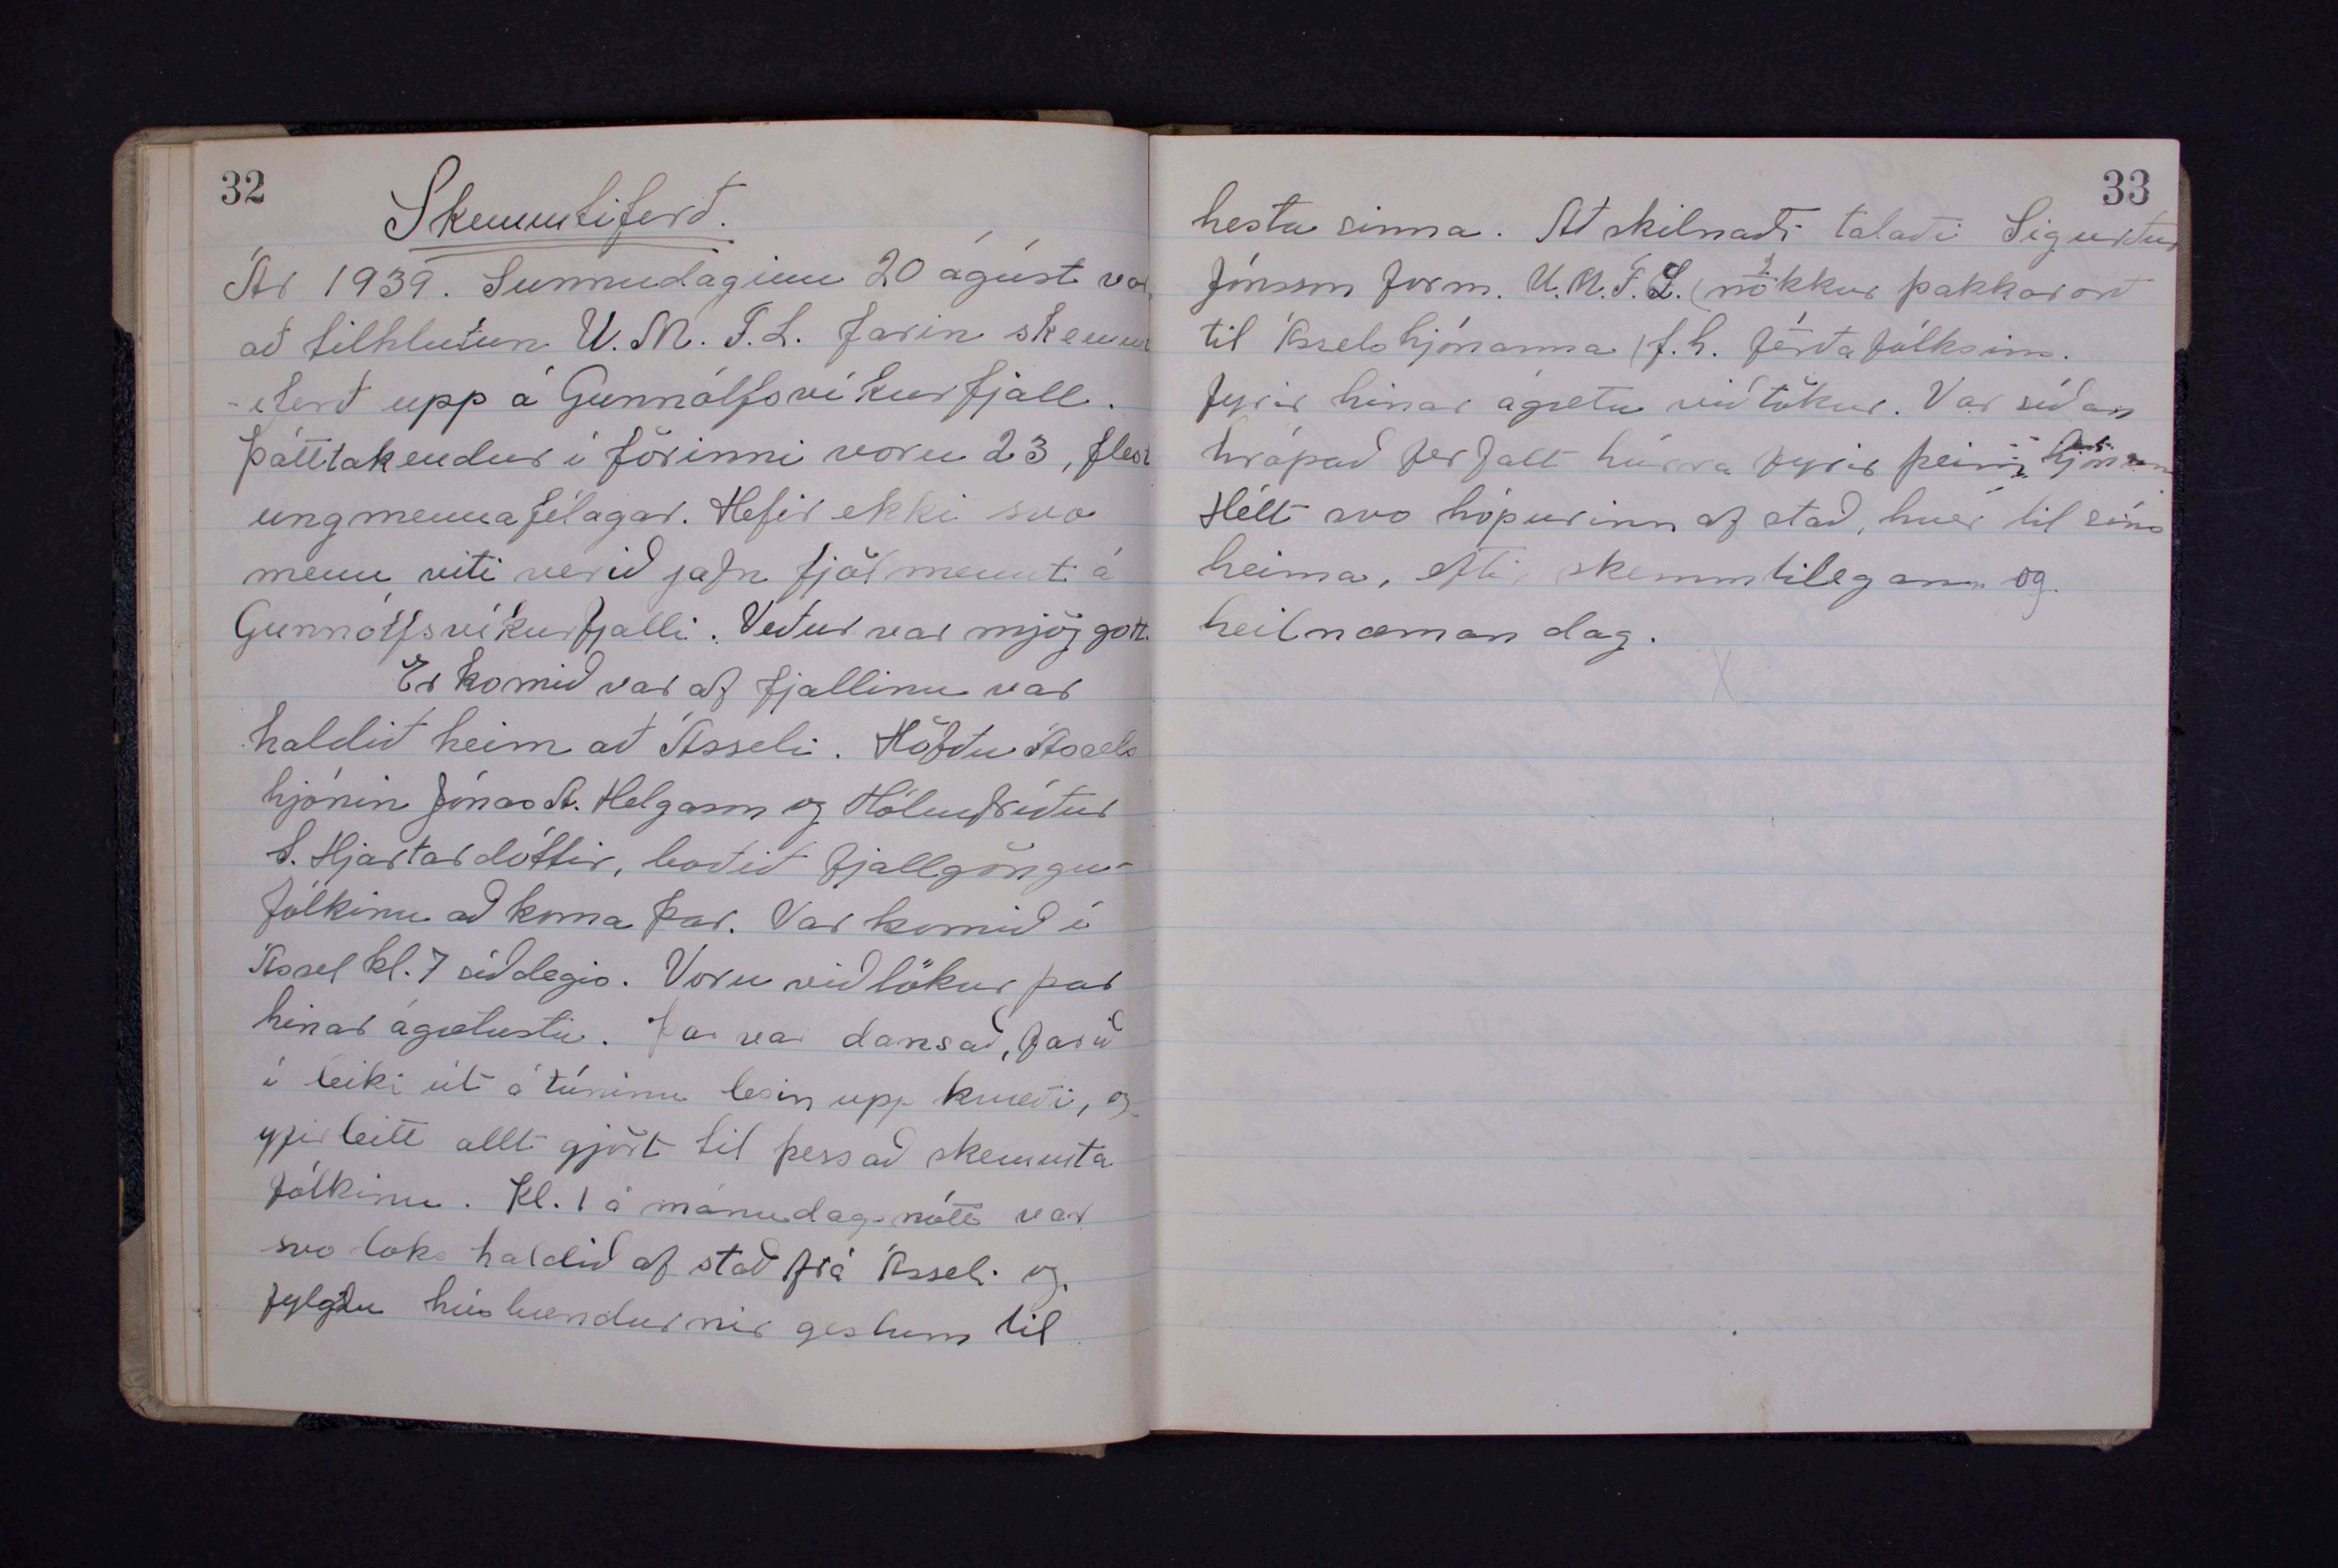 32
Skemmtiferð.
Ár 1939. Sunnudaginn 20 ágúst var
að tilhlutun U.M.F.L. farin skemmt
-iferð upp á Gunnólfsvíkurfjall.
Þátttakendur í förinni voru 23, flest
ungmennafélagar. Hefir ekki svo
menn viti verið jafn fjölmennt á
Gunnólfsvíkurfjalli. Veður var mjög gott.
Er komið var af fjallinu var
haldið heim að Ásseli. Höfðu Ássels
hjónin Jónas A. Helgason og Hólmfríður
S. Hjartardóttir, boðið fjallgöngu-
fólkinu að koma þar. Var komið í
Ássel kl. 7 síðdegis. Voru viðtökur þar
hinar ágætustu. Þar var dansað, farið
í leiki út á túninu lesin upp kvæði, og
yfirleitt allt gjört til þess að skemmta
fólkinu. Kl. 1 á mánudagsnótt var
svo loks haldið af stað frá Ásseli og
fylgdu húsbændurnir gestum til
33
hesta sinna. Að skilnaði talaði Sigurður
Jónsson form. U.M.F.L. nokkur þakkarorð
til Ásselshjónanna f.h. ferðafólksins.
fyrir hinar ágætu viðtökur. Var síðan
hrópað ferfalt húrra fyrir þeim hjónum
Hélt svo hópurinn af stað, hver til síns
heima, eftir skemmtilegann og
heilnæman dag.